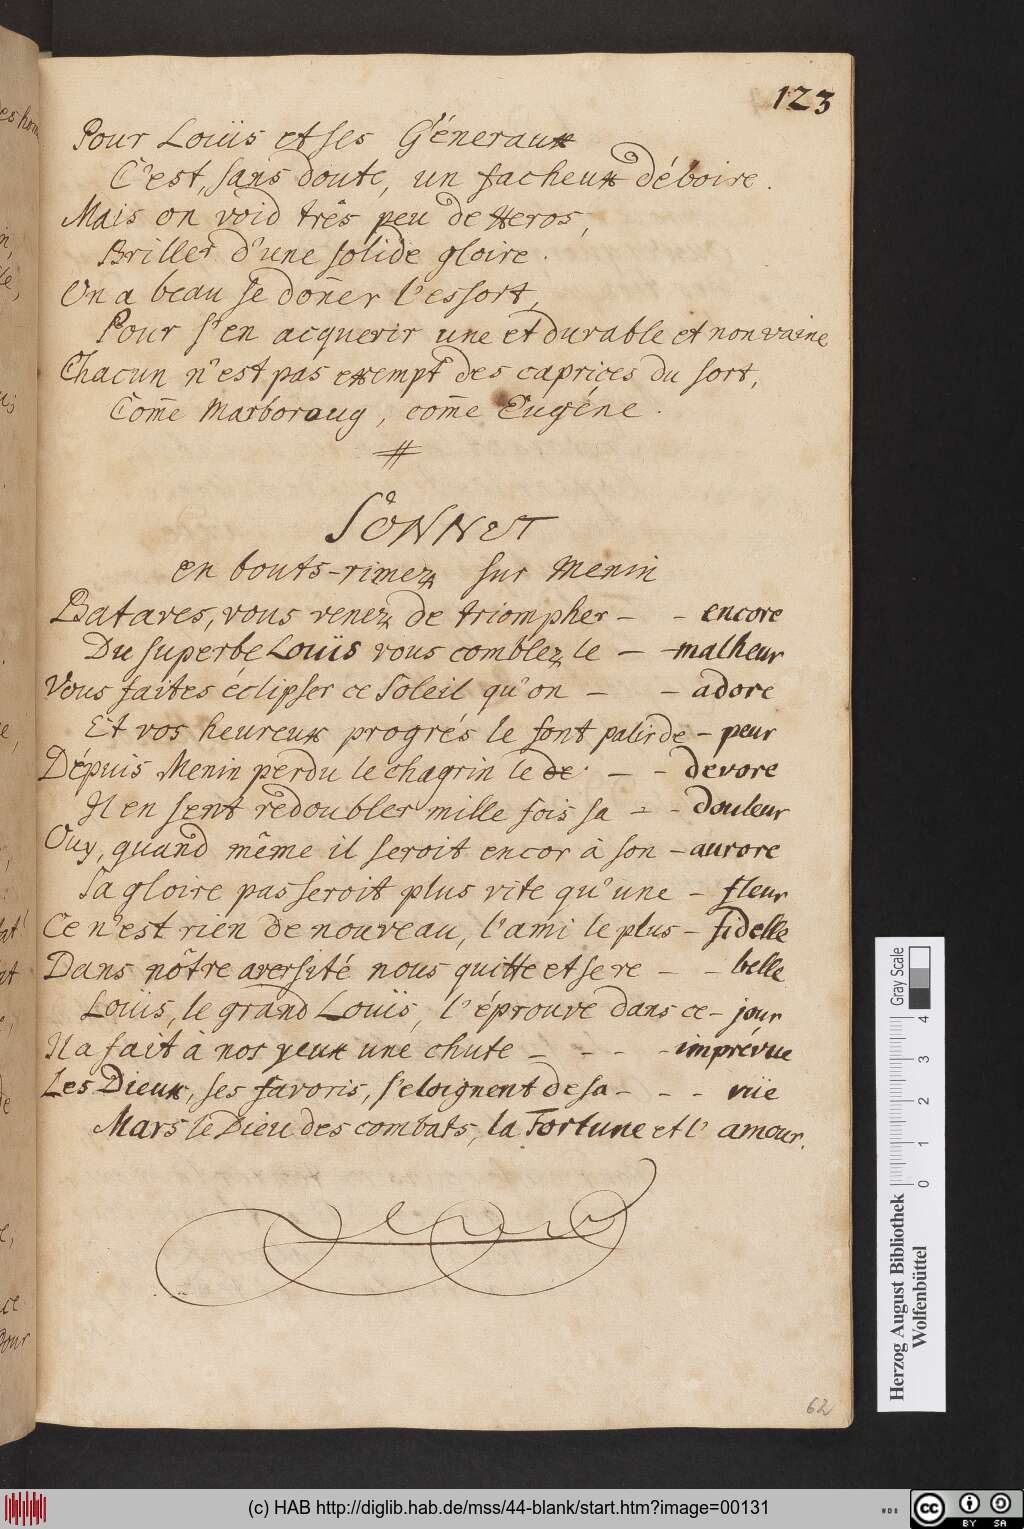 123
Pour Louïs et ses Géneraux
C'est, sans doute, un facheux déboire.
Mais on void très peu de Heros,
Briller d'une solide gloire.
On a beau se doñer l'essort,
Pour s'en acquerir une et durable et non vaine
Chacun n'est pas exempt des caprices du sort,
Com̃e Marboroug, com̃e Eugéne.
SONNET
en bouts-rimez sur Menin
Bataves, vous venez de triompher - - encore
Du superbe Louïs vous comblez le - - malheur
Vous faites éclipser ce Soleil qu'on - - adore
Et vos heureux progrés le font palir de - peur
Dépuis Menin perdu le chagrin le de - - devore
Il en sent redoubler mille fois sa - - douleur
Ouy, quand même il seroit encor à son - aurore
Sa gloire passeroit plus vite qu'une - fleur
Ce n'est rien de nouveau, l'ami le plus - fidelle
Dans nôtre aversité nous quitte et se re - - belle
Louïs, le grand Louïs, l'éprouve dans ce - jour
Il a fait à nos yeux une chute - - - - imprévue
Les Dieux, ses favoris, s'eloignent de sa - - - vüe
Mars le Dieu des combats, la Fortune et l' amour.
62
Herzog August Bibliothek
Wolfenbüttel
0 1 2 3 4
Gray Scale
(c) HAB http://diglib.hab.de/mss/44-blank/start.htm?image=00131
WDB
cc
BY SA